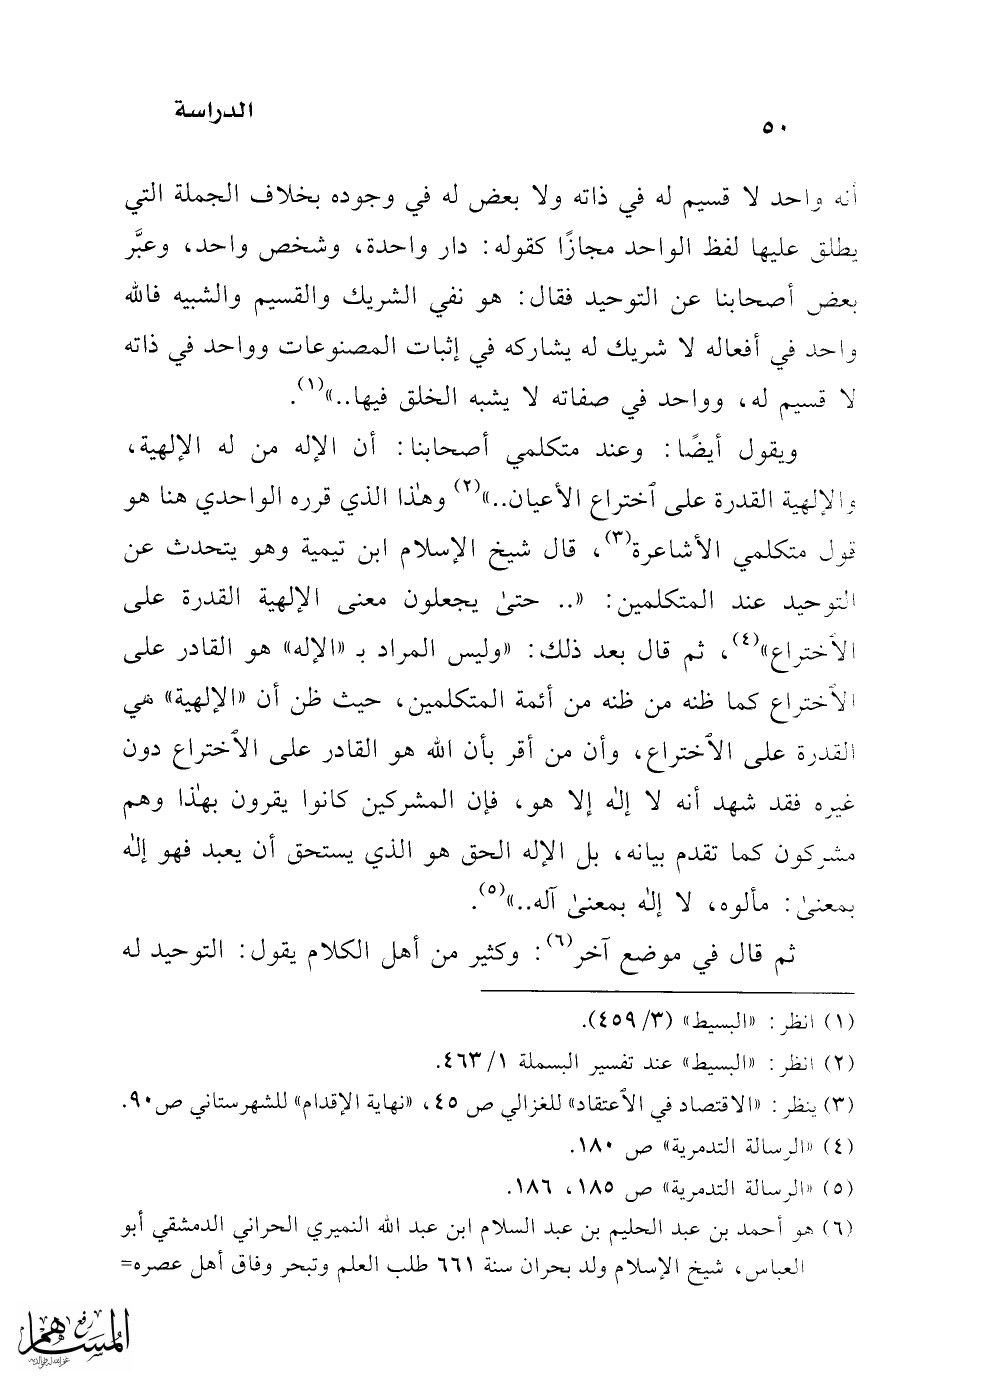 الدراسة
٥٠
أنه واحد لا قسيم له في ذاته ولا بعض له في وجوده بخلاف الجملة التي
يطلق عليها لفظ الواحد مجازًا كقوله: دار واحدة، وشخص واحد، وعبَّر
بعض أصحابنا عن التوحيد فقال: هو نفي الشريك والقسيم والشبيه فالله
واحد في أفعاله لا شريك له يشاركه في إثبات المصنوعات وواحد في ذاته
لا قسيم له، وواحد في صفاته لا يشبه الخلق فيها..»(١).
ويقول أيضًا: وعند متكلمي أصحابنا: أن الإله من له الإلهية،
والإلهية القدرة على ٱختراع الأعيان..»(٢) وهٰذا الذي قرره الواحدي هنا هو
قول متكلمي الأشاعرة(٣)، قال شيخ الإسلام ابن تيمية وهو يتحدث عن
التوحيد عند المتكلمين: «.. حتىٰ يجعلون معنى الإلهية القدرة على
الٱختراع»(٤)، ثم قال بعد ذلك: «وليس المراد بـ «الإله» هو القادر على
الٱختراع كما ظنه من ظنه من أئمة المتكلمين، حيث ظن أن «الإلهية» هي
القدرة على الٱختراع، وأن من أقر بأن الله هو القادر على الٱختراع دون
غيره فقد شهد أنه لا إلٰه إلا هو، فإن المشركين كانوا يقرون بهٰذا وهم
مشركون كما تقدم بيانه، بل الإله الحق هو الذي يستحق أن يعبد فهو إلٰه
بمعنىٰ: مألوه، لا إلٰه بمعنىٰ آله..»(٥).
ثم قال في موضع آخر(٦): وكثير من أهل الكلام يقول: التوحيد له
(١) انظر: «البسيط» (٣/ ٤٥٩).
(٢) انظر: «البسيط» عند تفسير البسملة ١/ ٤٦٣.
(٣) ينظر: «الاقتصاد في الٱعتقاد» للغزالي ص ٤٥، «نهاية الإقدام» للشهرستاني ص٩٠.
(٤) «الرسالة التدمرية» ص ١٨٠.
(٥) «الرسالة التدمرية» ص ١٨٥، ١٨٦.
(٦) هو أحمد بن عبد الحليم بن عبد السلام ابن عبد الله النميري الحراني الدمشقي أبو
العباس، شيخ الإسلام ولد بحران سنة ٦٦١ طلب العلم وتبحر وفاق أهل عصره=